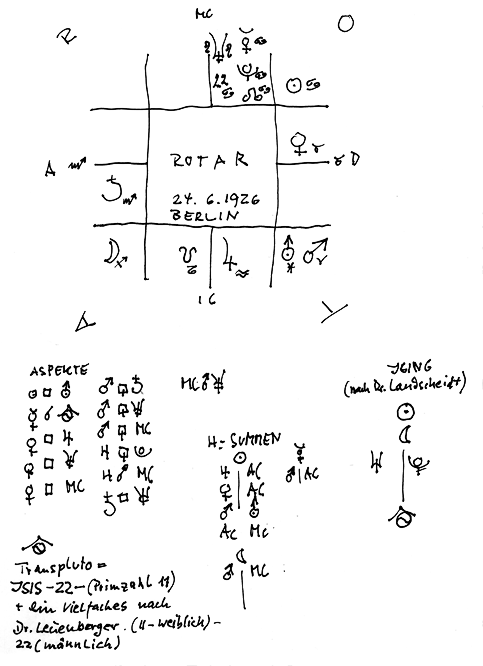 MC
R O
☿ ♃ ♀ ♋
22 ♋ ☊ ♋ ☉ ♋
A ♏ ROTAR ♀ ♉ ♉ D
♄ ♏
24. 6. 1926
BERLIN
☽ ♐ ♃ ♒ ♂ ♈
IC
A
ASPEKTE
☉ □ ⛢
♀ □ ♃
♀ □ ♆
♀ □ MC
♂ ⚼ ♄
♂ ⚼ ♆
♂ ⚼ MC
♃ ☍ MC
♄ □ ♆
MC ☌ ♆
H = SUMMEN
☉
♃ | AC
♀ | AC
♂ | ⛢
AC MC
☿
♂ | AC
☾
♂ | MC
JGING
(nach Dr. Landscheidt)
☉
☾
♆ | ♇
Transpluto =
JSIS-22-(Primzahl 11)
+ ein vielfaches nach
Dr. Leuenberger. (11-weiblich)-
22 (männlich)